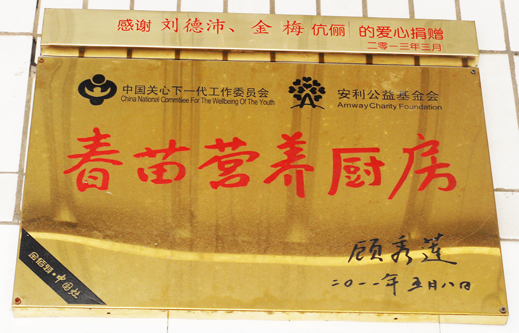 感谢 刘德沛、金梅 伉俪 的爱心捐赠
二零一三年三月
中国关心下一代工作委员会
China National Committee For The Wellbeing Of The Youth
安利公益基金会
Amway Charity Foundation
春苗营养厨房
顾秀莲
二〇一一年五月八日